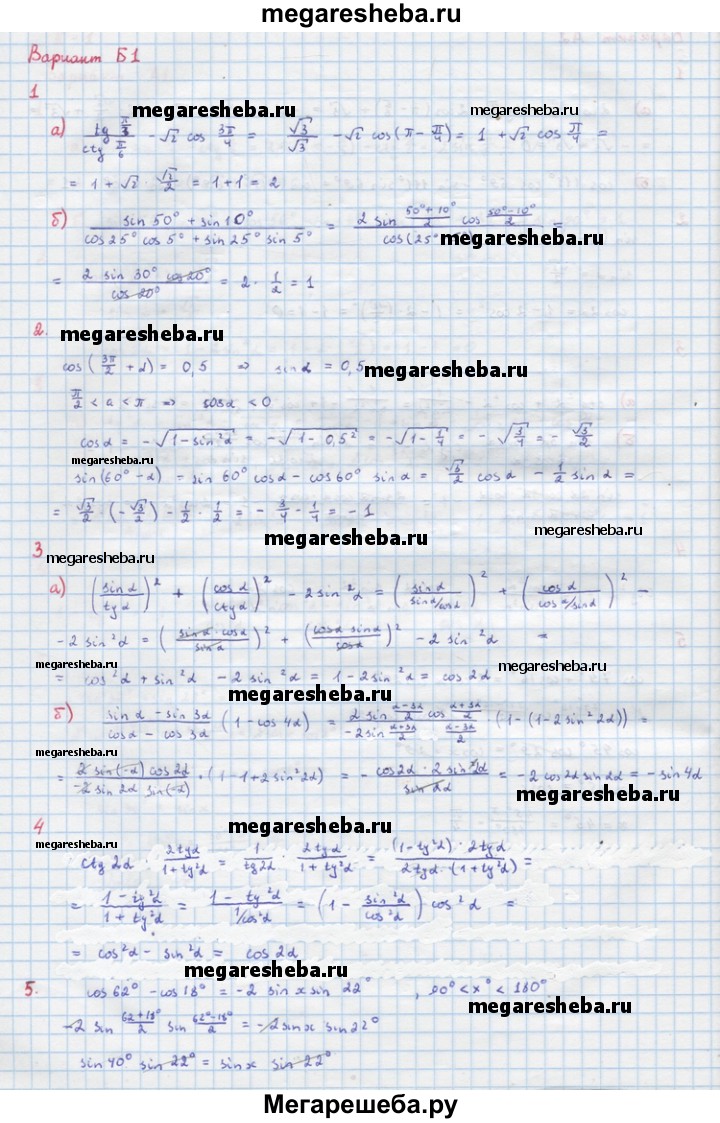 megaresheba.ru
Вариант Б1
1
megaresheba.ru megaresheba.ru
а) tg π/3 / ctg π/6 - √2 cos 3π/4 = √3/√3 - √2 cos(π - π/4) = 1 + √2 cos π/4 =
= 1 + √2 · √2/2 = 1 + 1 = 2
б) (sin 50° + sin 10°) / (cos 25° cos 5° + sin 25° sin 5°) = 2 sin (50°+10°)/2 cos (50°-10°)/2 / cos(25°
megaresheba.ru
= 2 sin 30° cos 20° / cos 20° = 2 · 1/2 = 1
2.
megaresheba.ru
cos(3π/2 + α) = 0,5 ⇒ sin α = 0,5
megaresheba.ru
π/2 < α < π ⇒ cosα < 0
cosα = -√(1 - sin²α) = -√(1 - 0,5²) = -√(1 - 1/4) = -√(3/4) = -√3/2
megaresheba.ru
sin(60° - α) = sin 60° cosα - cos 60° sin α = √3/2 cosα - 1/2 sin α =
= √3/2 · (-√3/2) - 1/2 · 1/2 = -3/4 - 1/4 = -1
megaresheba.ru
megaresheba.ru
3
megaresheba.ru
а) (sinα/tgα)² + (cosα/ctgα)² - 2 sin²α = (sinα / sinα/cosα)² + (cosα / cosα/sinα)² -
- 2 sin²α = (sinα · cosα / sinα)² + (cosα sinα / cosα)² - 2 sin²α =
megaresheba.ru megaresheba.ru
= cos²α + sin²α - 2 sin²α = 1 - 2 sin²α = cos 2α
megaresheba.ru
б) (sinα - sin 3α) / (cosα - cos 3α) (1 - cos 4α) = 2 sin (α-3α)/2 cos (α+3α)/2 / -2 sin (α+3α)/2 · (α-3α)/2 · (1 - (1 - 2 sin² 2α)) =
megaresheba.ru
= 2 sin(-α) cos 2α / -2 sin 2α sin(-α) · (1 - 1 + 2 sin² 2α) = - cos 2α · 2 sin² 2α / sin 2α = -2 cos 2α sin 2α = - sin 4α
megaresheba.ru
4
megaresheba.ru
megaresheba.ru
ctg 2α · 2tgα / (1 + tg²α) = 1/tg2α · 2tgα / (1 + tg²α) = (1 - tg²α) · 2tgα / 2tgα · (1 + tg²α) =
= (1 - tg²α) / (1 + tg²α) = (1 - tg²α) / (1/cos²α) = (1 - sin²α/cos²α) cos²α =
= cos²α - sin²α = cos 2α
megaresheba.ru
5.
cos 62° - cos 18° = -2 sin x sin 22° , 90° < x° < 180°
megaresheba.ru
-2 sin (62+18°)/2 sin (62°-18°)/2 = -2 sin x sin 22°
sin 40° sin 22° = sin x sin 22°
Мегарешеба.ру